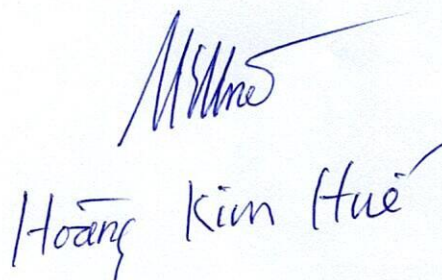 Hoàng Kim Huế